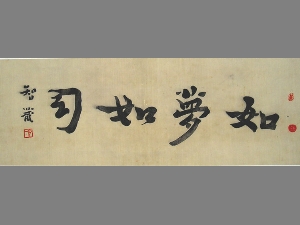 如夢如幻
智